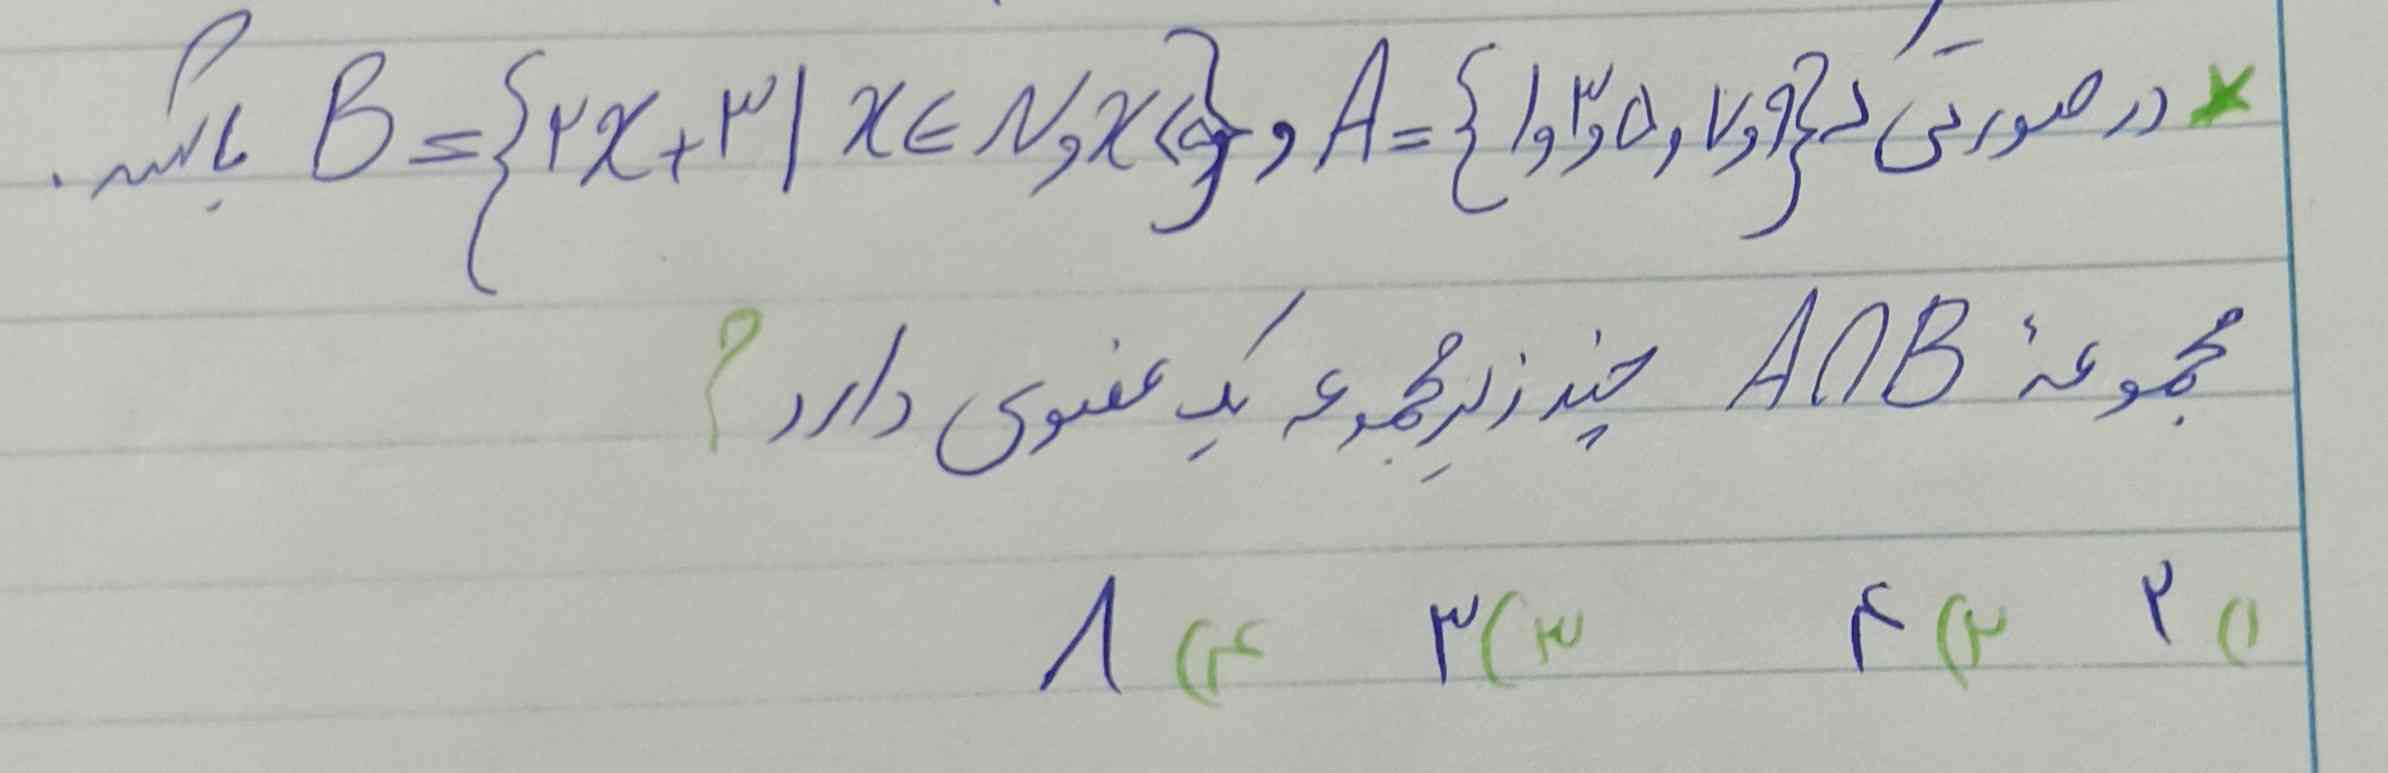 * در صورتی که A = {۱,۳,۵,۷,۹} و B = {۲x+۳ | x ∈ N, x< } باشد.
مجموعهٔ A∩B چند زیرمجموعه یک عضوی دارد؟
۱) ۲ ۲) ۴ ۳) ۳ ۴) ۸